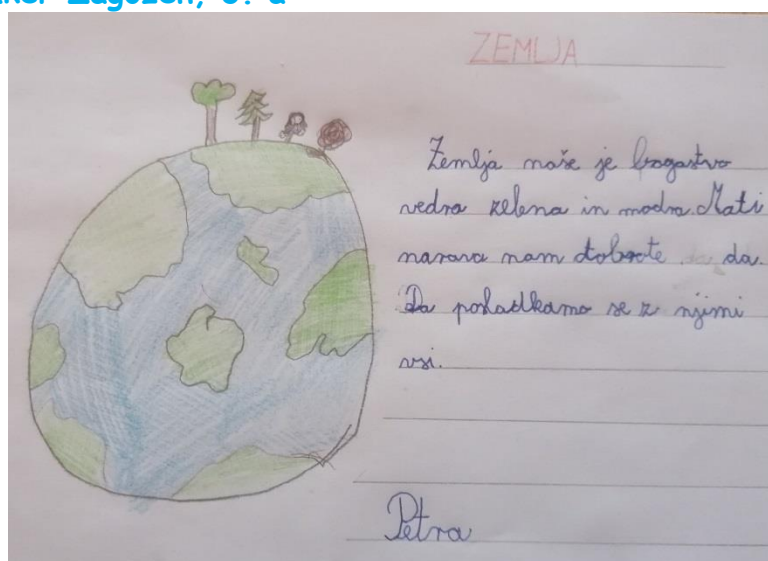 Zagožen, 3. a
ZEMLJA
Zemlja naše je bogastvo
vedno zelena in modra. Mati
narava nam dobrote da.
Da posladkamo se z njimi
vsi.
Petra